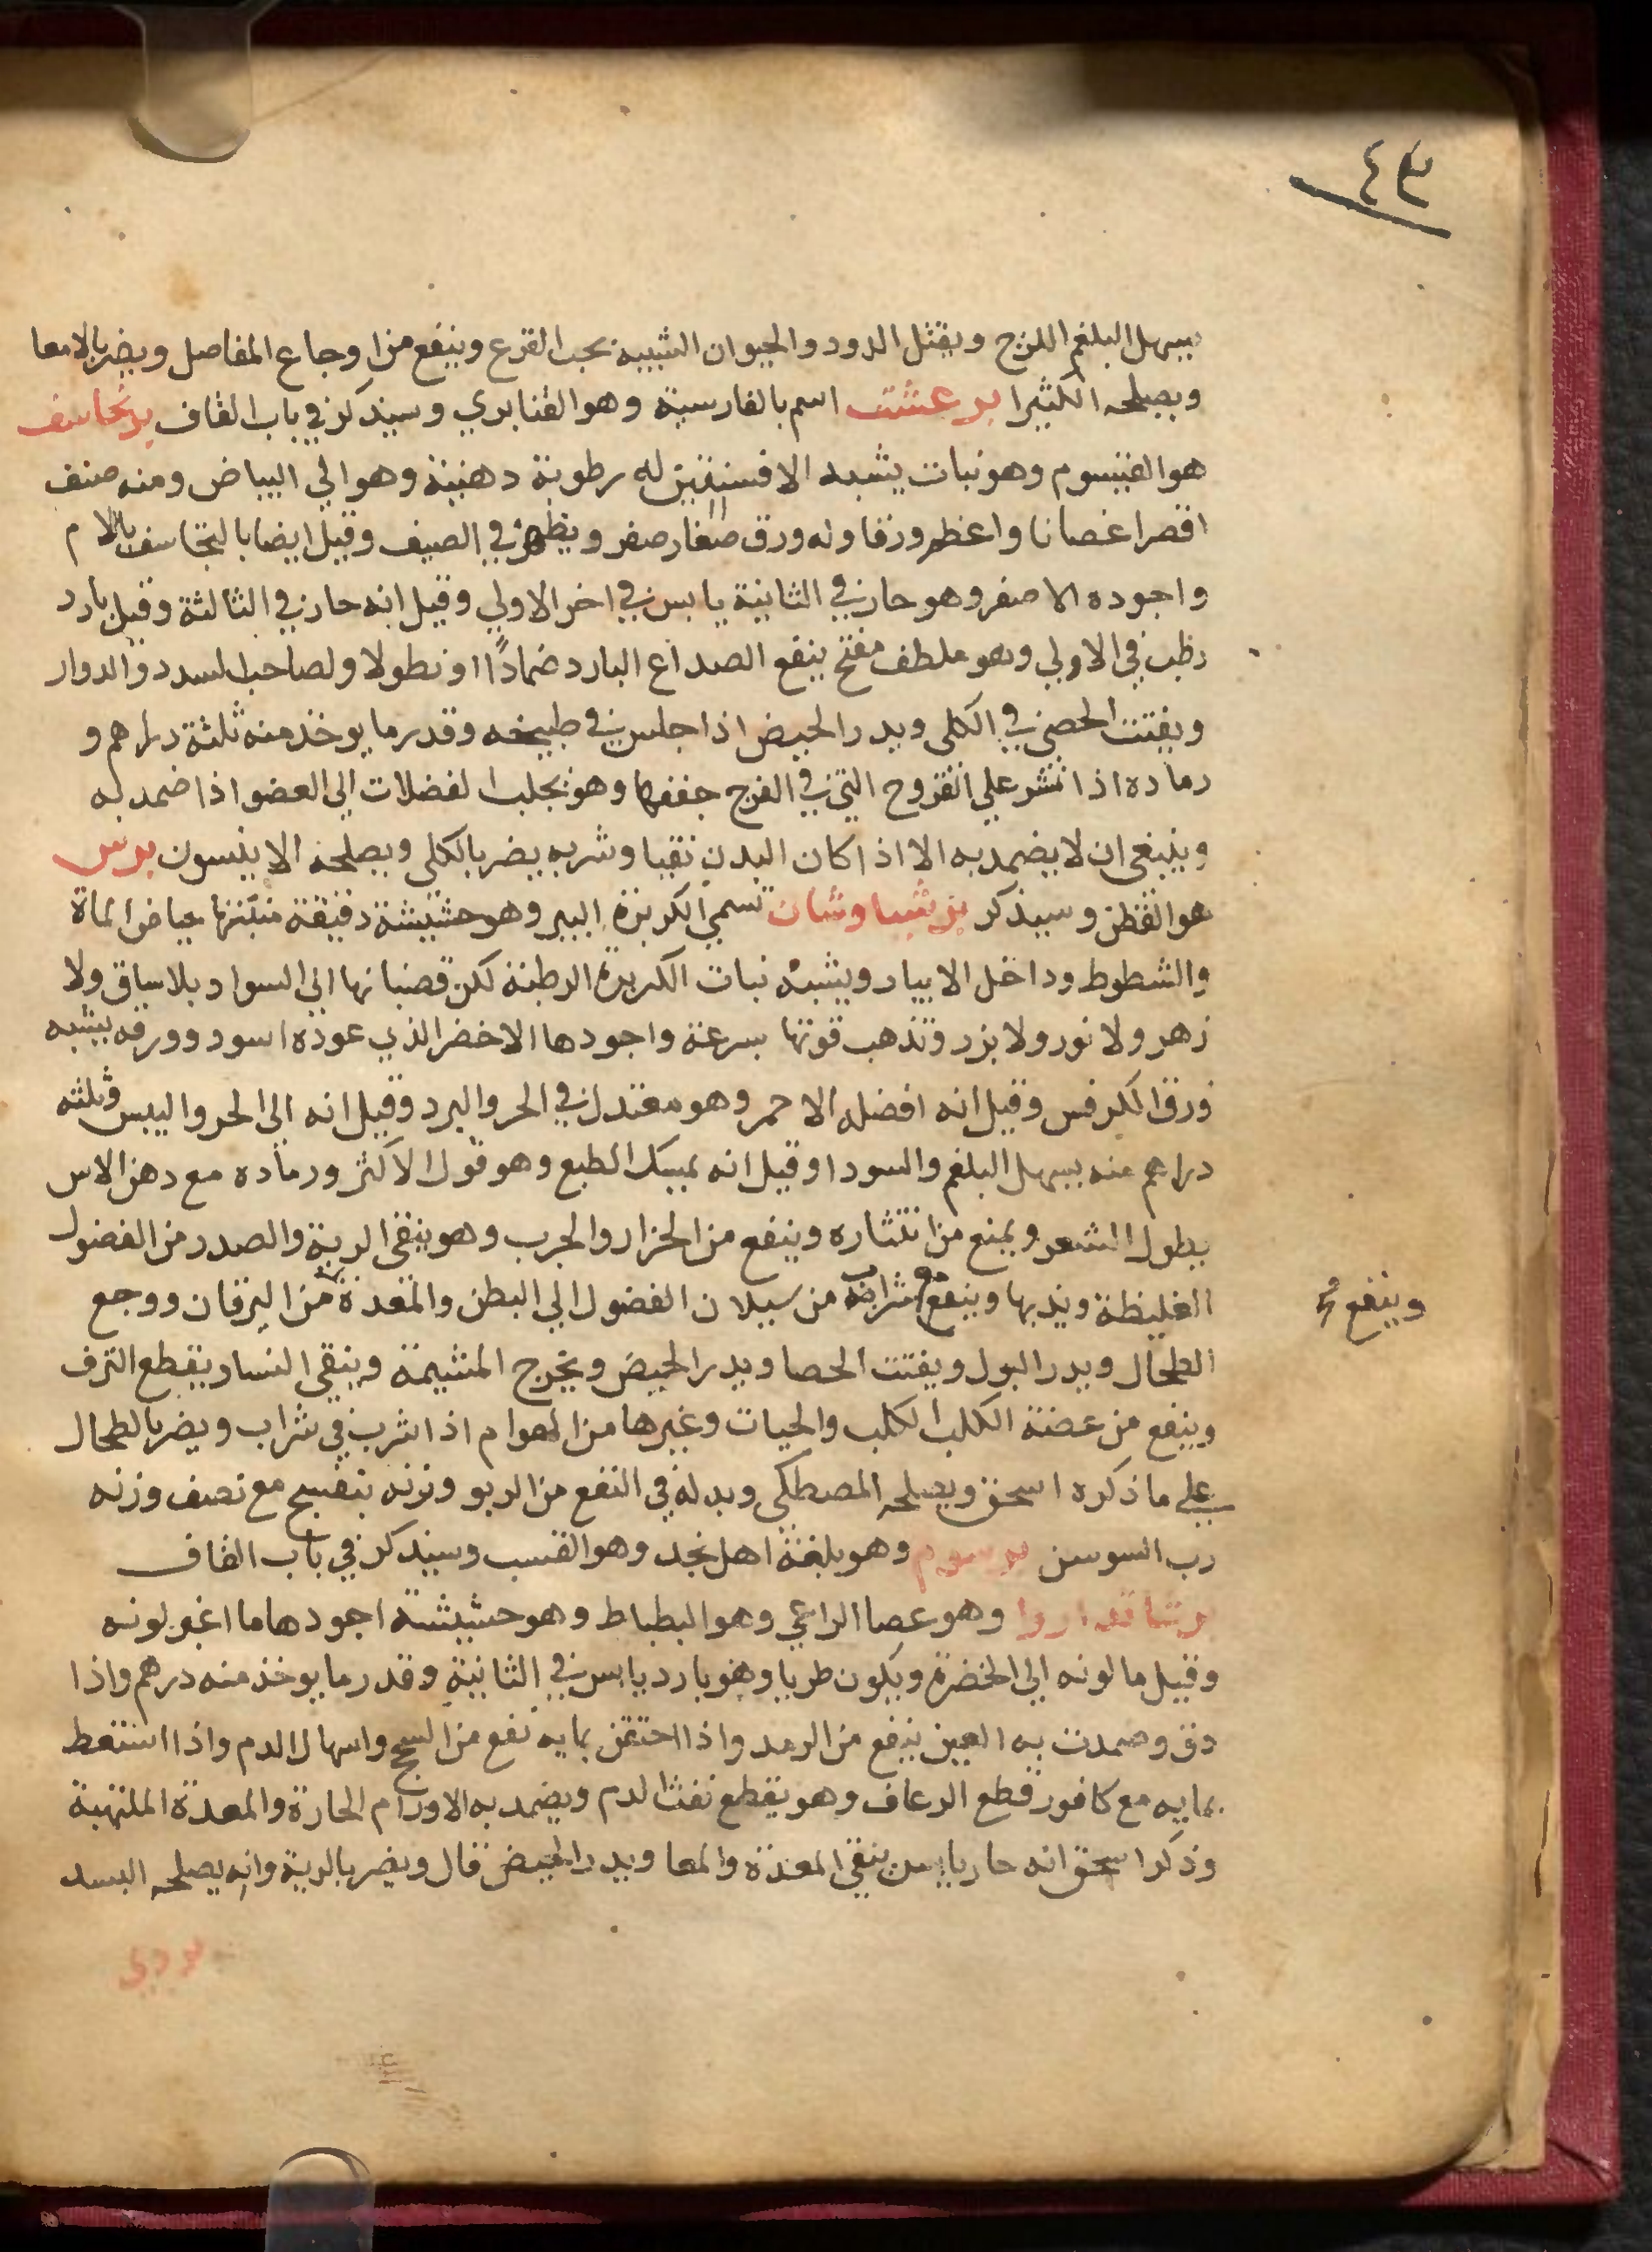 ٤٣
يسهل البلغم اللزج ويقتل الدود والحيوان الشبيه بحب القرع وينفع من اوجاع المفاصل ويضر بالامعا
ويصلحه الكثيرا برعشت اسم بالفارسية وهو القنابري وسيذكر في باب القاف برنجاسف
هو القيسوم وهو نبات يشبه الافسنتين له رطوبة دهنية وهو الي البياض ومنه صنف
اقصر اغصانا واعظم ورقا وله ورق صغار صفر ويظهر في الصيف وقيل ايضا بلنجاسف باللام
واجوده الاصفر وهو حار في الثانية يابس في اخر الاولي وقيل انه حار في الثالثة وقيل بارد
رطب في الاولي وهو ملطف مفتح ينفع الصداع البارد ضمادًا او نطولا ولصاحب السدد والدوار
ويفتت الحصى في الكلى ويدر الحيض اذا جلس في طبيخه وقدر ما يوخذ منه ثلثة دراهم و
رماده اذا نثر علي القروح التي في الفرج جففها وهو يجلب الفضلات الي العضو اذا ضمد له
وينبغي ان لا يضمد به الا اذا كان البدن نقيا وشربه يضر بالكلى ويصلحه الانيسون برس
هو القطن وسيذكر برشياوشان تسمي الكربزة البير وهو حشيشة دقيقة منبتها حياض الماة
والشطوط وداخل الابيار ويشبه نبات الكربزة الرطبة لكن قضبانها الى السواد بلا ساق ولا
زهر ولا نور ولا بزر وتذهب قوتها بسرعة واجودها الاخضر الذي عوده اسود وورقه يشبه
ورق الكرفس وقيل انه افضله الاحمر وهو معتدل في الحر والبرد وقيل انه الى الحر واليبس وثلثه
دراهم منه يسهل البلغم والسودا وقيل انه يمسك الطبع وهو قول الاكثر ورماده مع دهن الاس
يطول الشعر ويمنع من انتثاره وينفع من الحزاز والجرب وهو ينقي الرية والصدر من الفضول
الغليظة ويذيبها وينفع مع شراب من سيلان الفضول الي البطن والمعدة من اليرقان ووجع
وينفع
الطحال ويدر البول ويفتت الحصا ويدر الحيض ويخرج المشيمة وينقي النسا ويقطع النزف
وينفع من عضة الكلب الكلب والحيات وغيرها من الهوام اذا شرب في شراب ويضر بالطحال
علي ما ذكره اسحق ويصلحه المصطكى وبدله في النفع من الربو وزنه بنفسج مع نصف وزنه
رب السوسن برسوم وهو بلغة اهل نجد وهو القسب وسيذكر في باب القاف
برشاندارو وهو عصا الراعي وهو البطباط وهو حشيشة اجودها ما اغبر لونه
وقيل ما لونه الي الخضرة ويكون طريا وهو بارد يابس في الثانية وقدر ما يوخذ منه درهم واذا
دق وضمدت به العين ينفع من الرمد واذا احتقن بمايه نفع من السحج واسهال الدم واذا استعط
بمايه مع كافور قطع الرعاف وهو يقطع نفث الدم ويضمد به الاورام الحارة والمعدة الملتهبة
وذكر اسحق انه حار يابس ينقي المعدة والمعا ويدر الحيض قال ويضر بالرية وانه يصلحه البسد
بردي